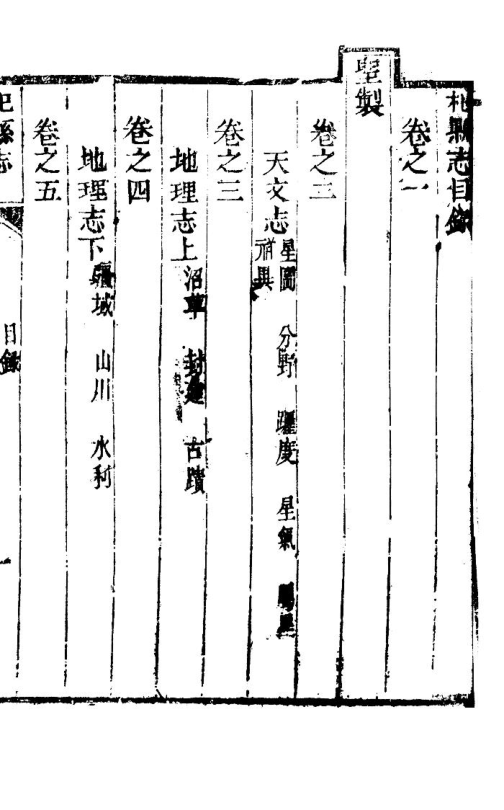 杞縣志目錄
卷之一
聖製
卷之二
天文志 星圖 分野 躔度 星氣
祥異
卷之三
地理志上 沿革 封建 古蹟
卷之四
地理志下 疆域 山川 水利
卷之五
杞縣志
目錄